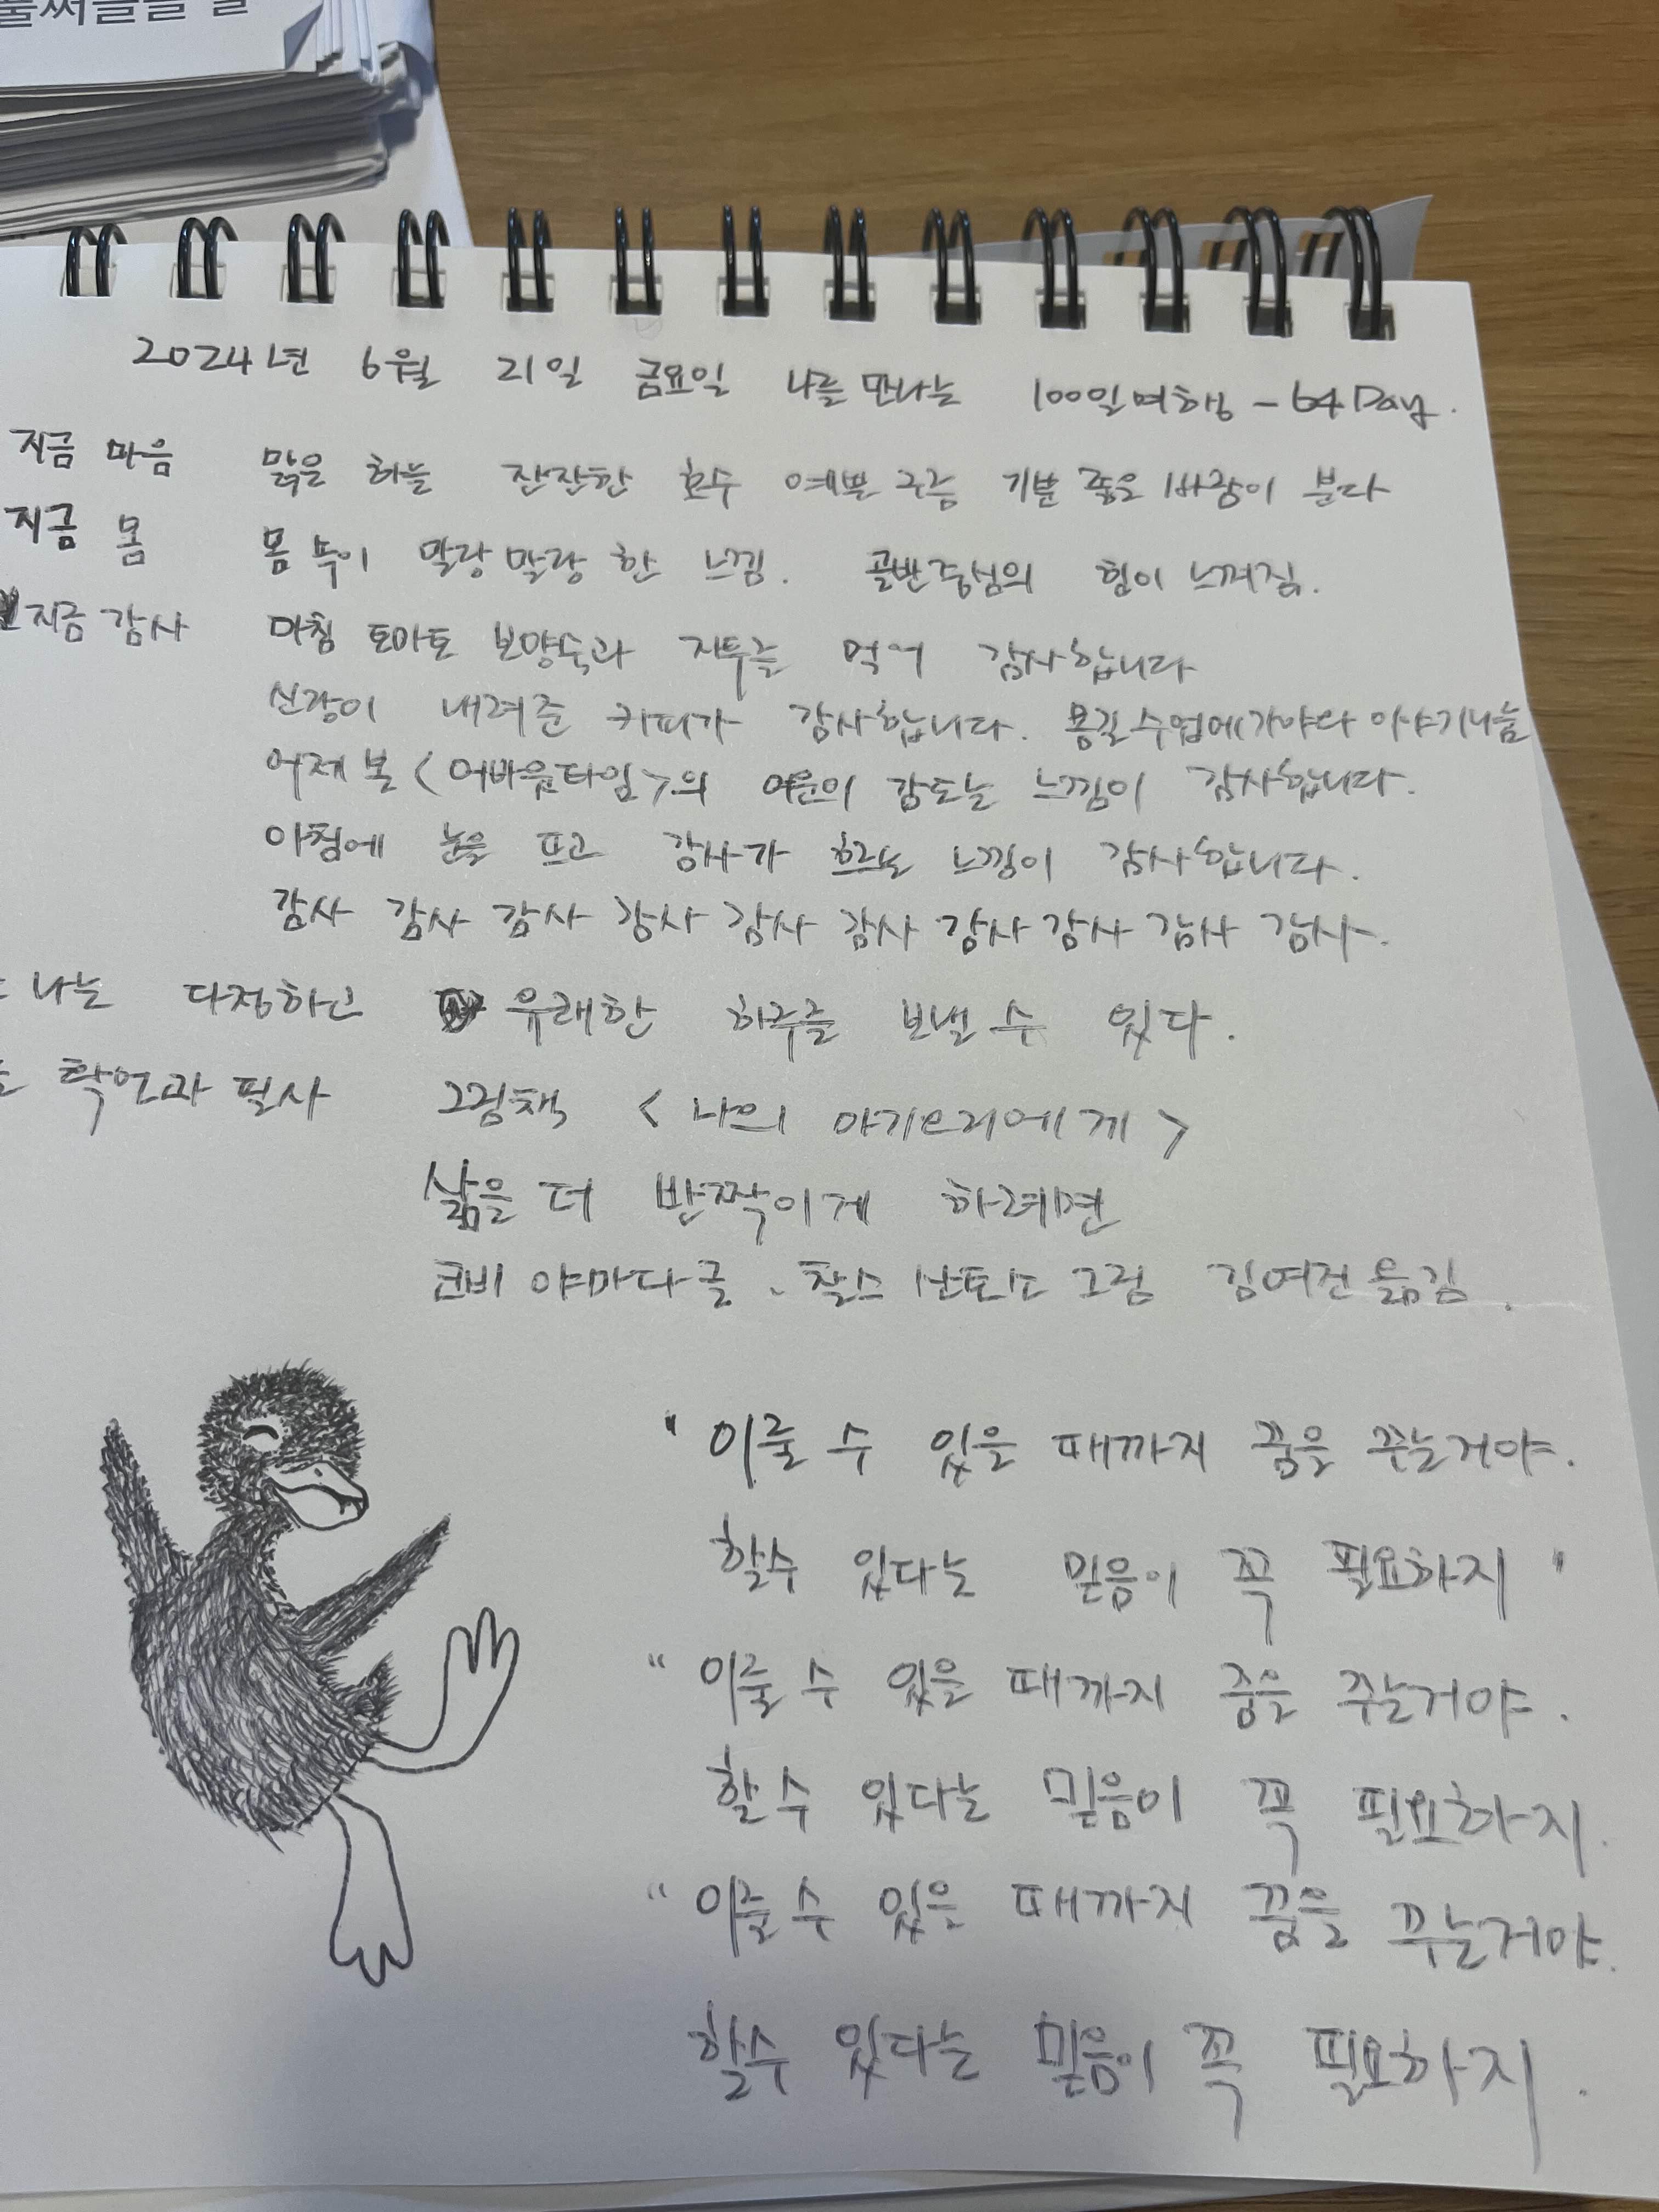 2024년 6월 21일 금요일 나를 만나는 100일 여행 - 64 Day.
지금 마음 맑은 하늘 잔잔한 호수 예쁜 구름 기분 좋은 바람이 분다
지금 몸 몸 뚱이 말랑말랑 한 느낌. 골반중심의 힘이 느껴짐.
지금 감사 아침 토마토 보양숙과 자두를 먹어 감사합니다
신랑이 내려준 커피가 감사합니다. 몸길수업에
어제 본 <어바웃타임>의 여운이 감도는 느낌이 감사합니다.
아침에 눈을 뜨고 감사가 흐르는 느낌이 감사합니다.
감사 감사 감사 감사 감사 감사 감사 감사 감사 감사.
나는 다정하고 유쾌한 하루를 보낼 수 있다.
확언과 필사 그림책 <나의 아기오리에게>
삶을 더 반짝이게 하려면
코비 야마다 글. 찰스 산토소 그림 김여진 옮김.
" 이룰 수 있을 때까지 꿈을 꾸는거야.
할수 있다는 믿음이 꼭 필요하지 "
" 이룰 수 있을 때까지 꿈을 꾸는거야.
할 수 있다는 믿음이 꼭 필요하지.
" 이룰 수 있을 때까지 꿈을 꾸는거야.
할수 있다는 믿음이 꼭 필요하지.